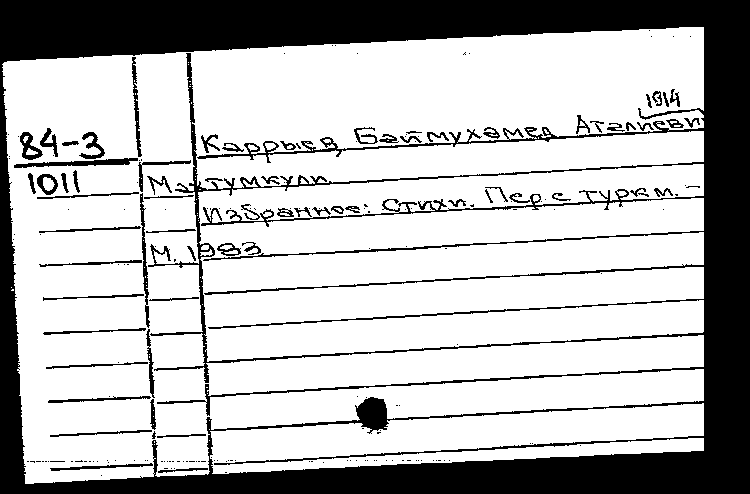 1914
84-3 Каррыев, Баймухамед Аталиеви
1011 Махтумкули.
Избранное: Стихи. Пер с туркм. -
М., 1983